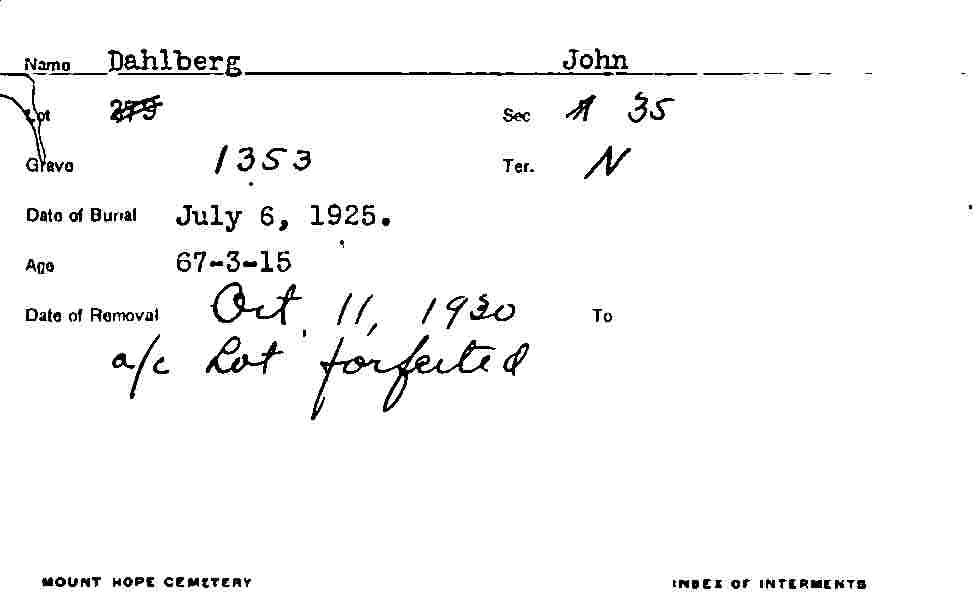 Name Dahlberg John
Lot 279 Sec 35
Grave 1353 Ter. N
Date of Burial July 6, 1925.
Age 67-3-15
Date of Removal Oct. 11, 1930 To
a/c Lot forfeited
MOUNT HOPE CEMETERY INDEX OF INTERMENTS